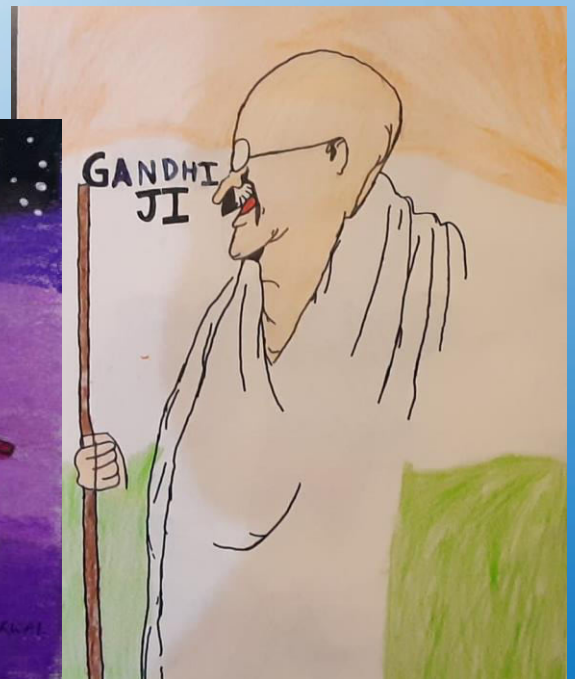 GANDHI
JI